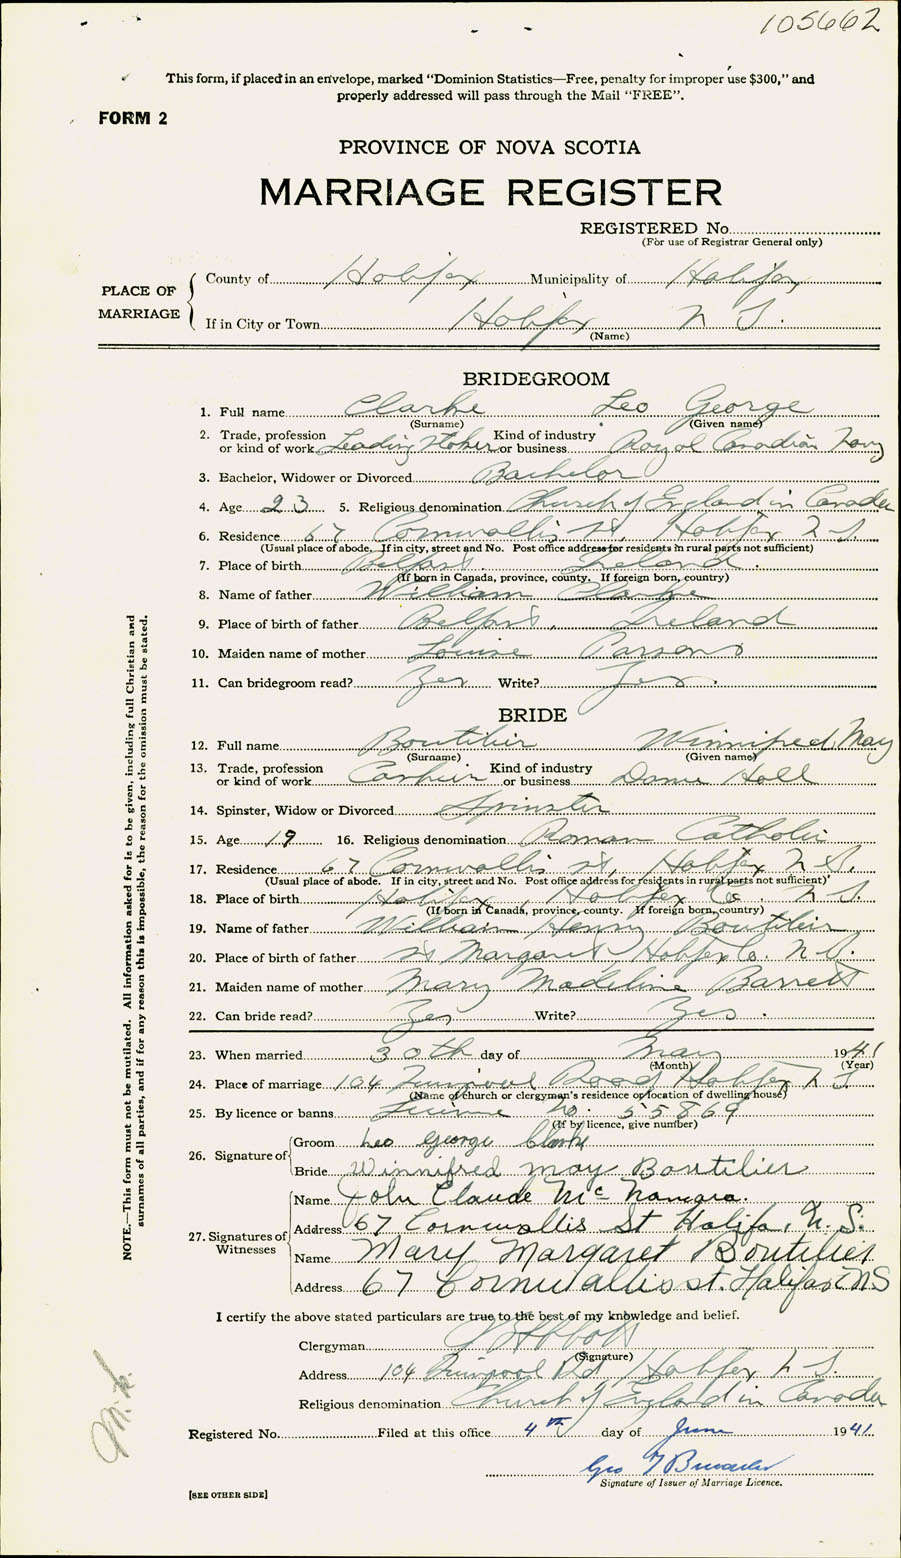 105662
This form, if placed in an envelope, marked “Dominion Statistics—Free, penalty for improper use $300,” and
properly addressed will pass through the Mail “FREE”.
FORM 2
PROVINCE OF NOVA SCOTIA
MARRIAGE REGISTER
REGISTERED No.
(For use of Registrar General only)
PLACE OF MARRIAGE
County of Halifax Municipality of Halifax
If in City or Town Halifax N S.
(Name)
BRIDEGROOM
1. Full name Clarke Leo George
(Surname) (Given name)
2. Trade, profession or kind of work Leading Stoker Kind of industry or business Royal Canadian Navy
3. Bachelor, Widower or Divorced Bachelor
4. Age 23 5. Religious denomination Church of England in Canada
6. Residence 67 Cornwallis St, Halifax N S.
(Usual place of abode. If in city, street and No. Post office address for residents in rural parts not sufficient)
7. Place of birth Belfast. Ireland.
(If born in Canada, province, county. If foreign born, country)
8. Name of father William Clarke
9. Place of birth of father Belfast, Ireland
10. Maiden name of mother Louise Parsons
11. Can bridegroom read? Yes Write? Yes.
BRIDE
12. Full name Boutilier Winnifred May
(Surname) (Given name)
13. Trade, profession or kind of work Cashier Kind of industry or business Dance Hall
14. Spinster, Widow or Divorced Spinster
15. Age 19 16. Religious denomination Roman Catholic
17. Residence 67 Cornwallis St, Halifax N S.
(Usual place of abode. If in city, street and No. Post office address for residents in rural parts not sufficient)
18. Place of birth Halifax, Halifax Co. N S.
(If born in Canada, province, county. If foreign born, country)
19. Name of father William Henry Boutilier
20. Place of birth of father St Margaret Halifax Co. N. S.
21. Maiden name of mother Mary Madeline Barrett
22. Can bride read? Yes Write? Yes.
23. When married 30th day of May 1941
(Month) (Year)
24. Place of marriage 104 Quinpool Road Halifax N S
(Name of church or clergyman's residence or location of dwelling house)
25. By licence or banns License No. 55869
(If by licence, give number)
26. Signature of Groom Leo George Clarke
Bride Winnifred May Boutilier
27. Signatures of Witnesses Name John Claude McNamara.
Address 67 Cornwallis St Halifa, N. S.
Name Mary Margaret Boutilier
Address 67 Cornwallis st. Halifax N S
I certify the above stated particulars are true to the best of my knowledge and belief.
Clergyman
(Signature)
Address 104 Quinpool Rd, Halifax N S.
Religious denomination Church of England in Canada
Registered No. Filed at this office 4th day of June 1941.
Geo
Signature of Issuer of Marriage Licence.
[SEE OTHER SIDE]
NOTE.—This form must not be mutilated. All information asked for is to be given, including full Christian and
surnames of all parties, and if for any reason this is impossible, the reason for the omission must be stated.